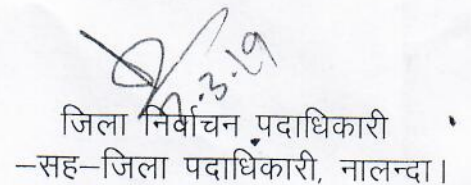 जिला निर्वाचन पदाधिकारी
–सह–जिला पदाधिकारी, नालन्दा।